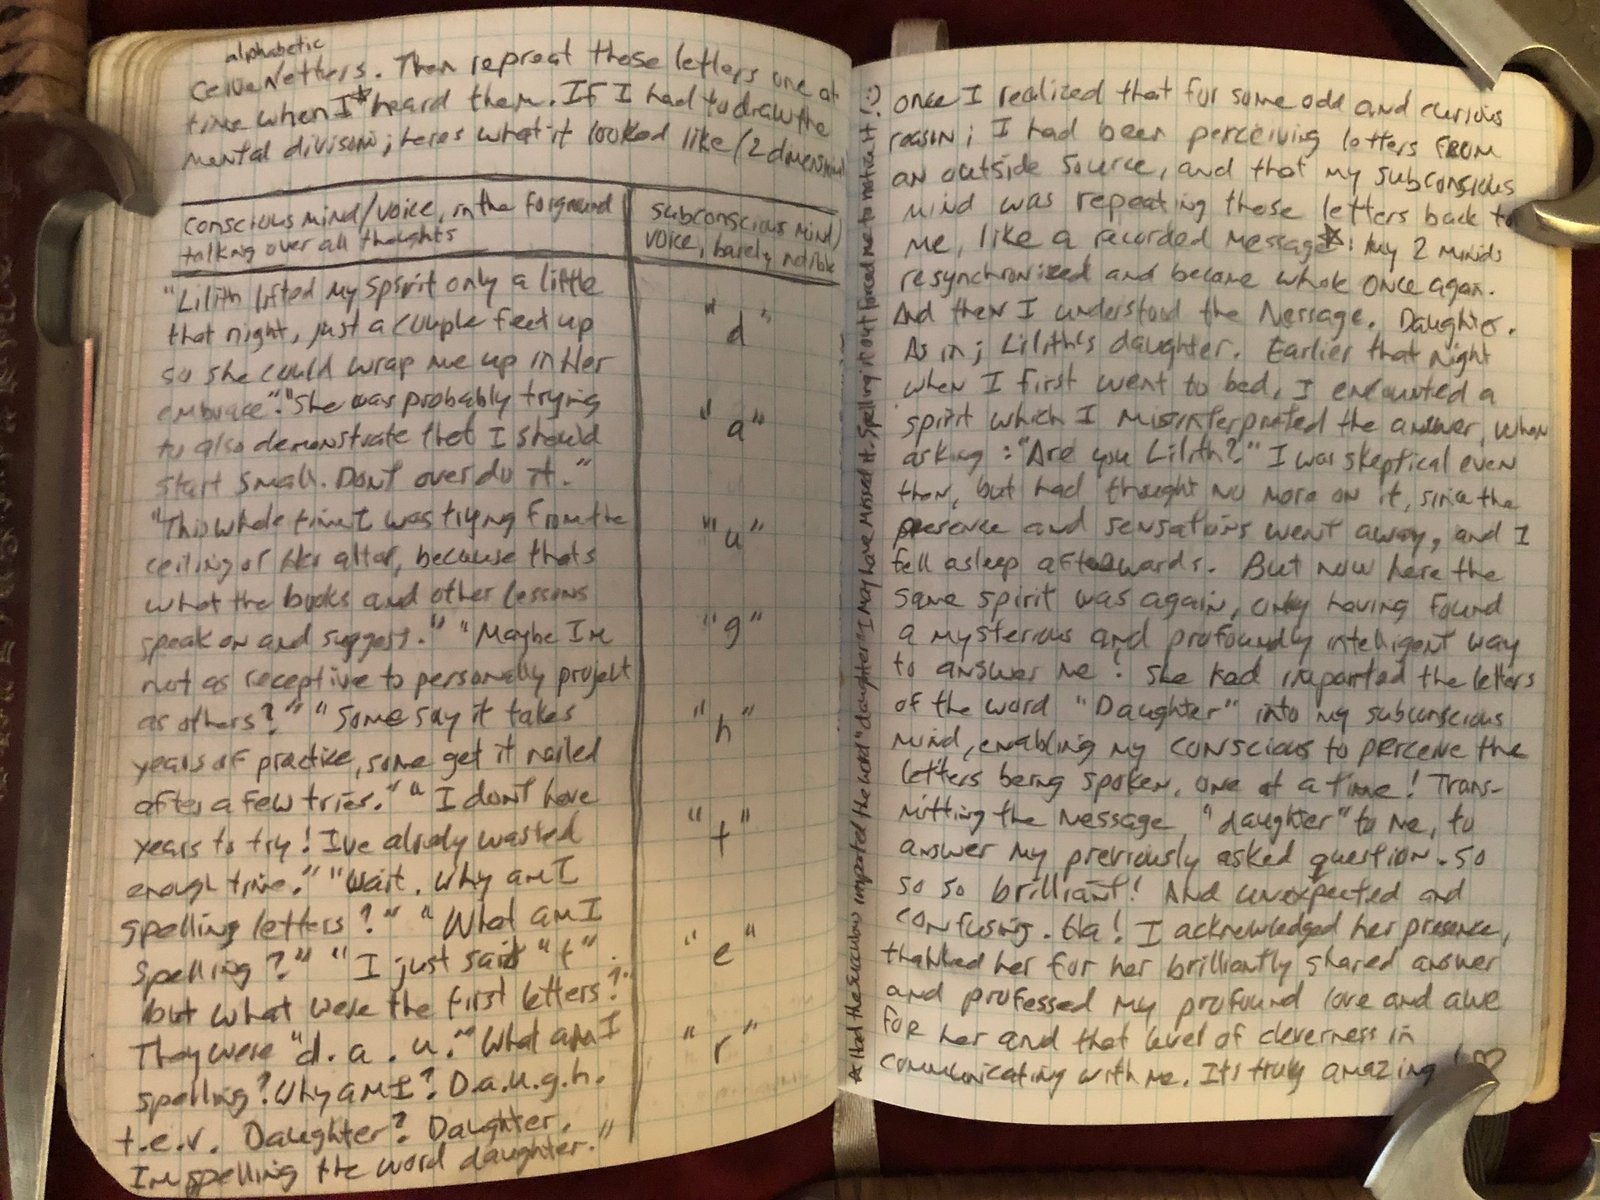 alphabetic
letters. Then repreat those letters one at
time when I* heard them. If I had to draw the
mental divison; heres what it looked like (2 dmensional
conscious mind/voice, in the forground
talking over all thoughts
subconscious mind/
voice, barely notible
"Lilith lifted my spsirit only a little
that night, just a couple feet up
so she could wrap me up in Her
embrace". "She was probably trying
to also demonstrate that I should
start small. Don't over do it."
"This whole time I was trying from the
ceiling of Her altar, because thats
what the books and other lessons
speak on and suggest." "Maybe Im
not as receptive to personally projekt
as others?" "Some say it takes
years of practice, some get it nailed
after a few tries." "I dont have
years to try! Ive alredy wasted
enough time." "Wait. Why am I
spelling letters?" "What am I
spelling?" "I just said "t".
but what were the first letters?"
They were "d. a. u." What am I
spelling? Why am I? D.a.u.g.h.
t.e.r. Daughter? Daughter.
Im spelling the word daughter."
"d"
"a"
"u"
"g"
"h"
"t"
"e"
"r"
* Had the succubus imparted the word "daughter" I may have missed it. Spelling it out forced me to notice it! :)
once I realized that for some odd and curious
reason; I had been perceiving letters FROM
an outside source, and that my subconscious
mind was repeating those letters back to
me, like a recorded message*! My 2 minds
resynchronized and became whole once again.
And then I understood the Message. Daughter.
As in; Lilith's daughter. Earlier that night
when I first went to bed, I encounted a
spirit which I misinterpreted the answer, when
asking: "Are you Lilith?" I was skeptical even
then, but had thought no more on it, since the
presence and sensations went away, and I
fell asleep afterwards. But now here the
same spirit was again, only having found
a mysterious and profoundly intelligent way
to answer me! She had imparted the letters
of the word "Daughter" into my subconscious
mind, enabling my conscious to perceive the
letters being spoken, one at a time! Trans-
mitting the message, "daughter" to me, to
answer my previously asked question. So
so so brilliant! And unexpected and
confusing. Ha! I acknowledged her presence,
thanked her for her brilliantly shared answer
and professed my profound love and awe
for her and that level of cleverness in
communicating with me. Its truly amazing! ♡